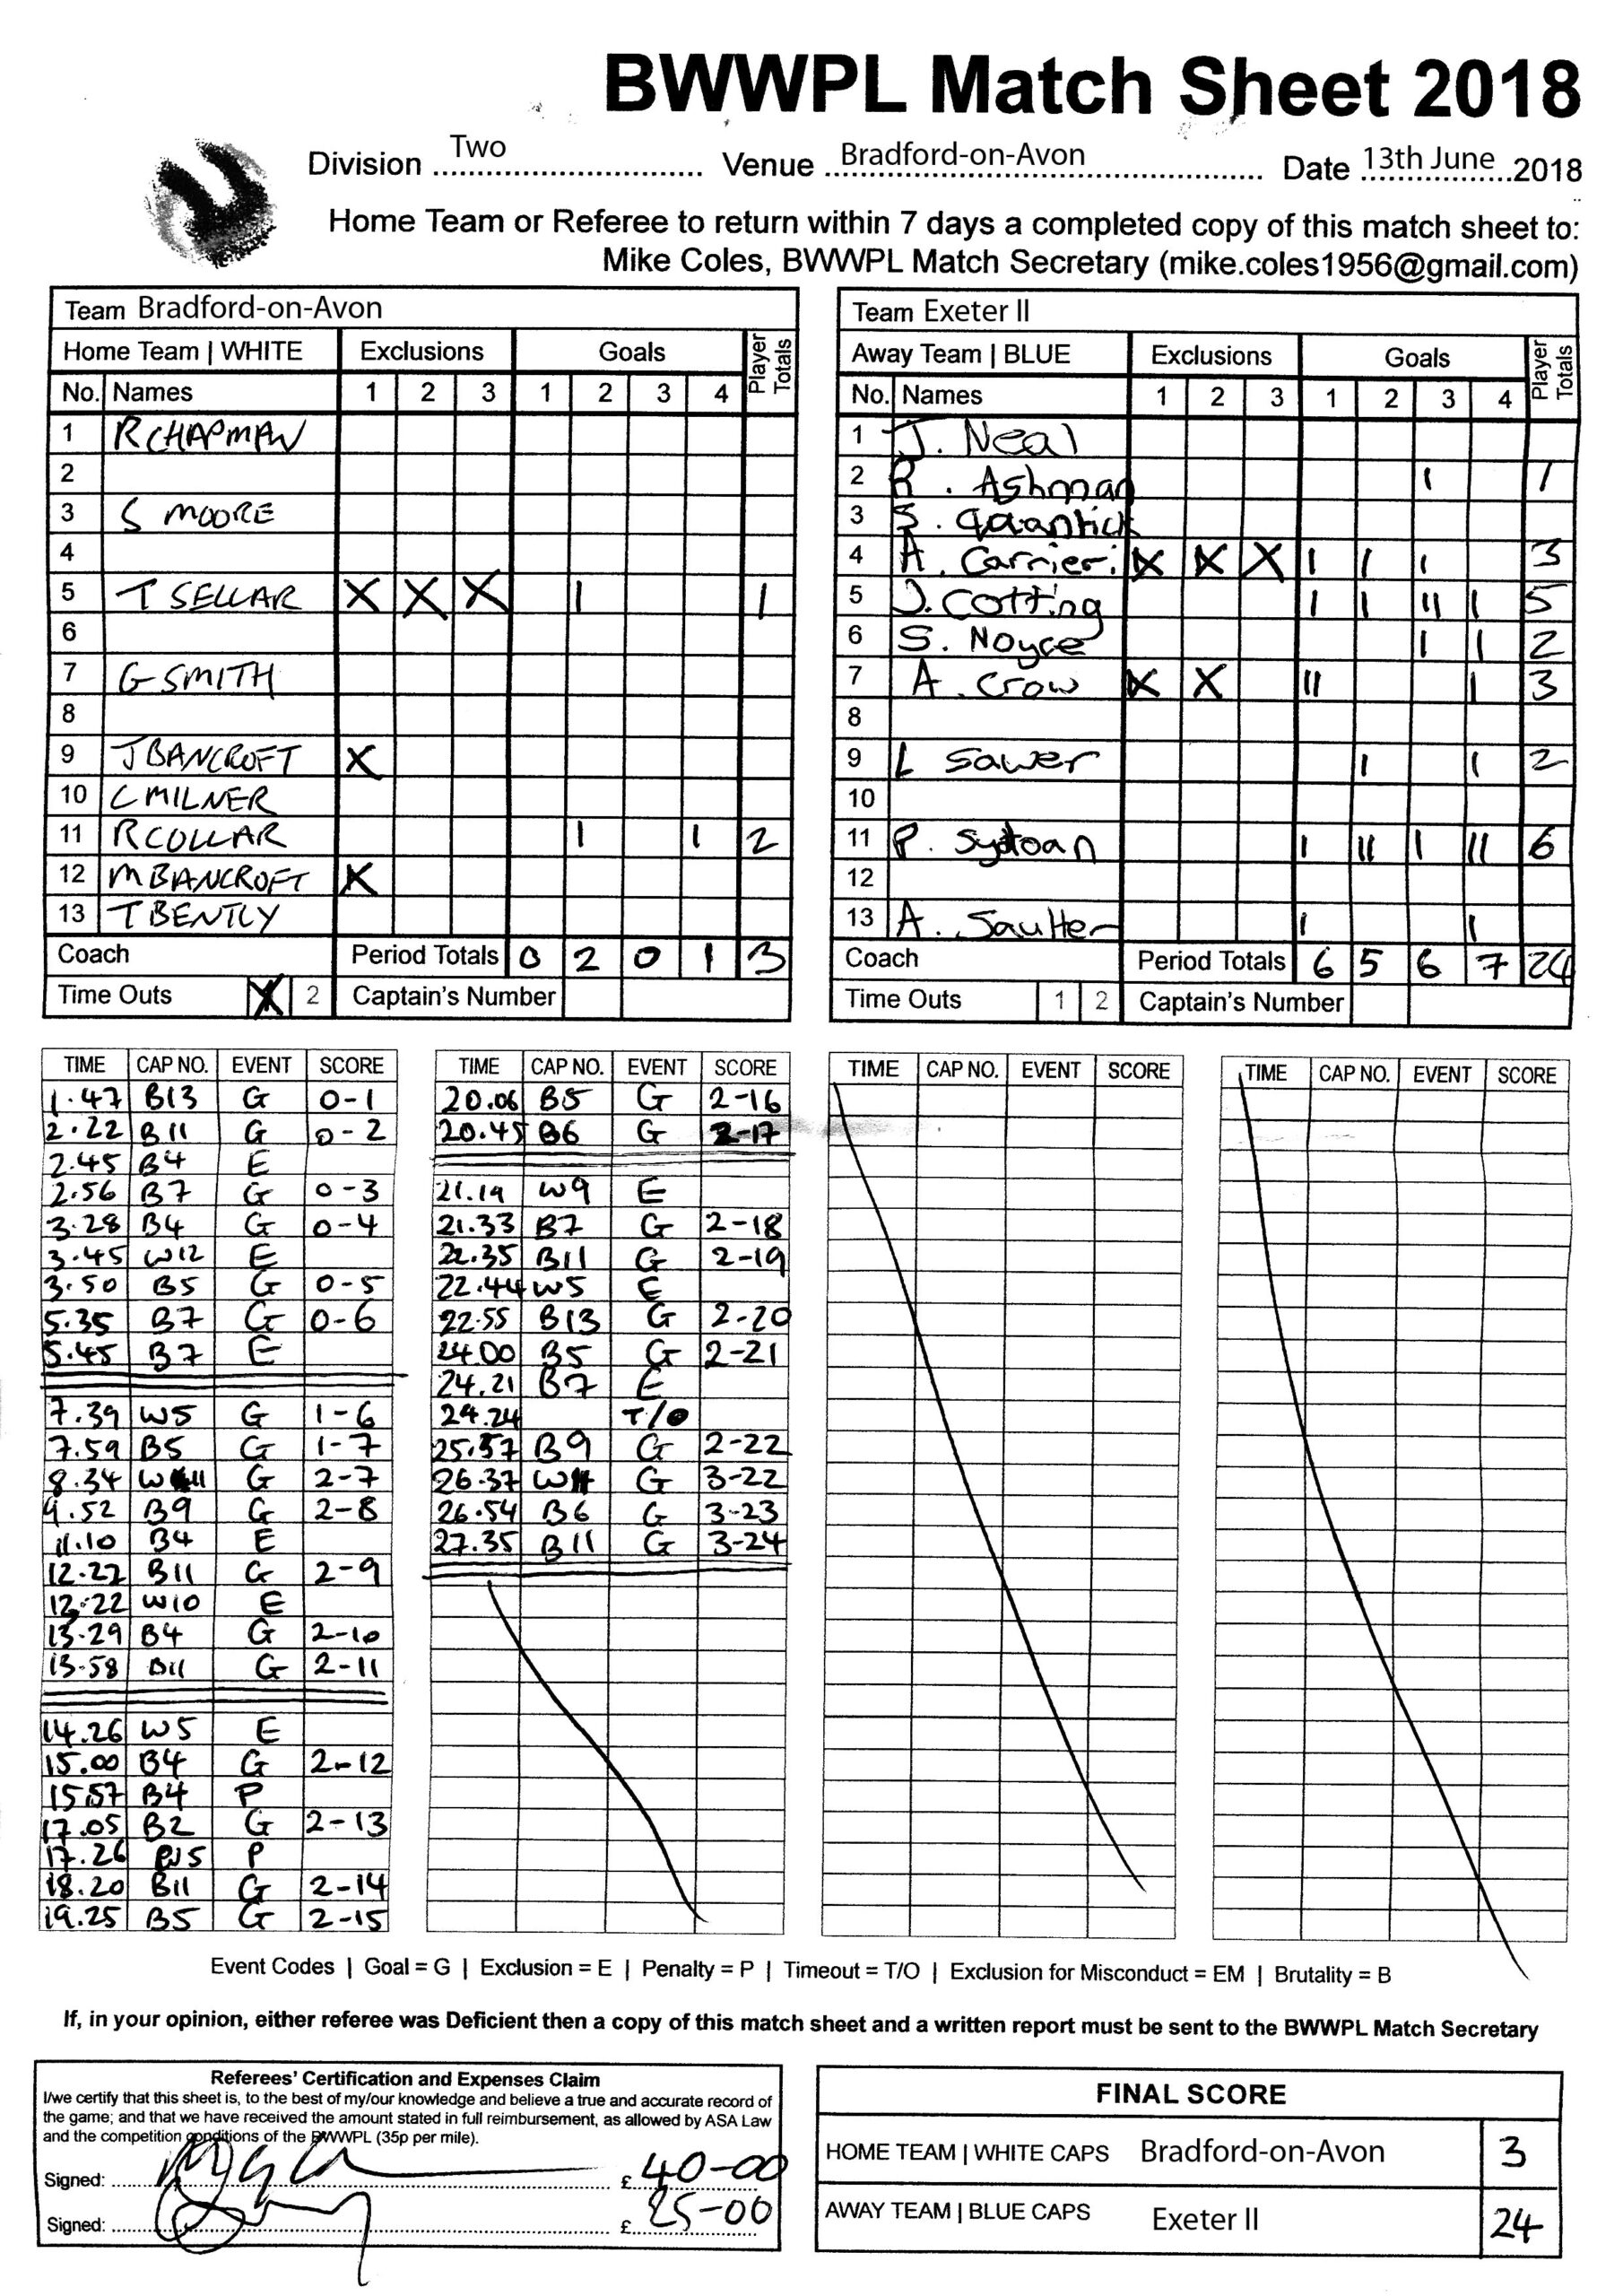 BWWPL Match Sheet 2018
Division Two Venue Bradford-on-Avon Date 13th June 2018
Home Team or Referee to return within 7 days a completed copy of this match sheet to:
Mike Coles, BWWPL Match Secretary (mike.coles1956@gmail.com)
Team Bradford-on-Avon
Home Team | WHITE Exclusions Goals Player Totals
No. Names 1 2 3 1 2 3 4
1 R CHAPMAN
2
3 S MOORE
4
5 T SELLAR X X X 1 1
6
7 G SMITH
8
9 J BANCROFT X
10 C MILNER
11 R COLLAR 1 1 2
12 M BANCROFT X
13 T BENTLY
Coach Period Totals 0 2 0 1 3
Time Outs X 2 Captain's Number
Team Exeter II
Away Team | BLUE Exclusions Goals Player Totals
No. Names 1 2 3 1 2 3 4
1 J. Neal
2 R. Ashman 1 1
3 S. Quantick
4 A. Carrieri X X X 1 1 1 3
5 J. Cotting 1 1 11 1 5
6 S. Noyce 1 1 2
7 A. Crow X X 11 1 3
8
9 L Sawer 1 1 2
10
11 P. Sydoan 1 11 1 11 6
12
13 A. Saulter 1 1
Coach Period Totals 6 5 6 7 24
Time Outs 1 2 Captain's Number
TIME CAP NO. EVENT SCORE
1.47 B13 G 0-1
2.22 B11 G 0-2
2.45 B4 E
2.56 B7 G 0-3
3.28 B4 G 0-4
3.45 W12 E
3.50 B5 G 0-5
5.35 B7 G 0-6
5.45 B7 E
7.39 W5 G 1-6
7.59 B5 G 1-7
8.34 W11 G 2-7
9.52 B9 G 2-8
11.10 B4 E
12.22 B11 G 2-9
12.22 W10 E
13.29 B4 G 2-10
13.58 B11 G 2-11
14.26 W5 E
15.00 B4 G 2-12
15.57 B4 P
17.05 B2 G 2-13
17.26 W5 P
18.20 B11 G 2-14
19.25 B5 G 2-15
TIME CAP NO. EVENT SCORE
20.06 B5 G 2-16
20.45 B6 G 2-17
21.19 W9 E
21.33 B7 G 2-18
22.35 B11 G 2-19
22.44 W5 E
22.55 B13 G 2-20
24.00 B5 G 2-21
24.21 B7 E
24.24 T/O
25.57 B9 G 2-22
26.37 W11 G 3-22
26.54 B6 G 3-23
27.35 B11 G 3-24
TIME CAP NO. EVENT SCORE
TIME CAP NO. EVENT SCORE
Event Codes | Goal = G | Exclusion = E | Penalty = P | Timeout = T/O | Exclusion for Misconduct = EM | Brutality = B
If, in your opinion, either referee was Deficient then a copy of this match sheet and a written report must be sent to the BWWPL Match Secretary
Referees' Certification and Expenses Claim
I/we certify that this sheet is, to the best of my/our knowledge and believe a true and accurate record of
the game; and that we have received the amount stated in full reimbursement, as allowed by ASA Law
and the competition conditions of the BWWPL (35p per mile).
Signed: £ 40-00
Signed: £ 25-00
FINAL SCORE
HOME TEAM | WHITE CAPS Bradford-on-Avon 3
AWAY TEAM | BLUE CAPS Exeter II 24